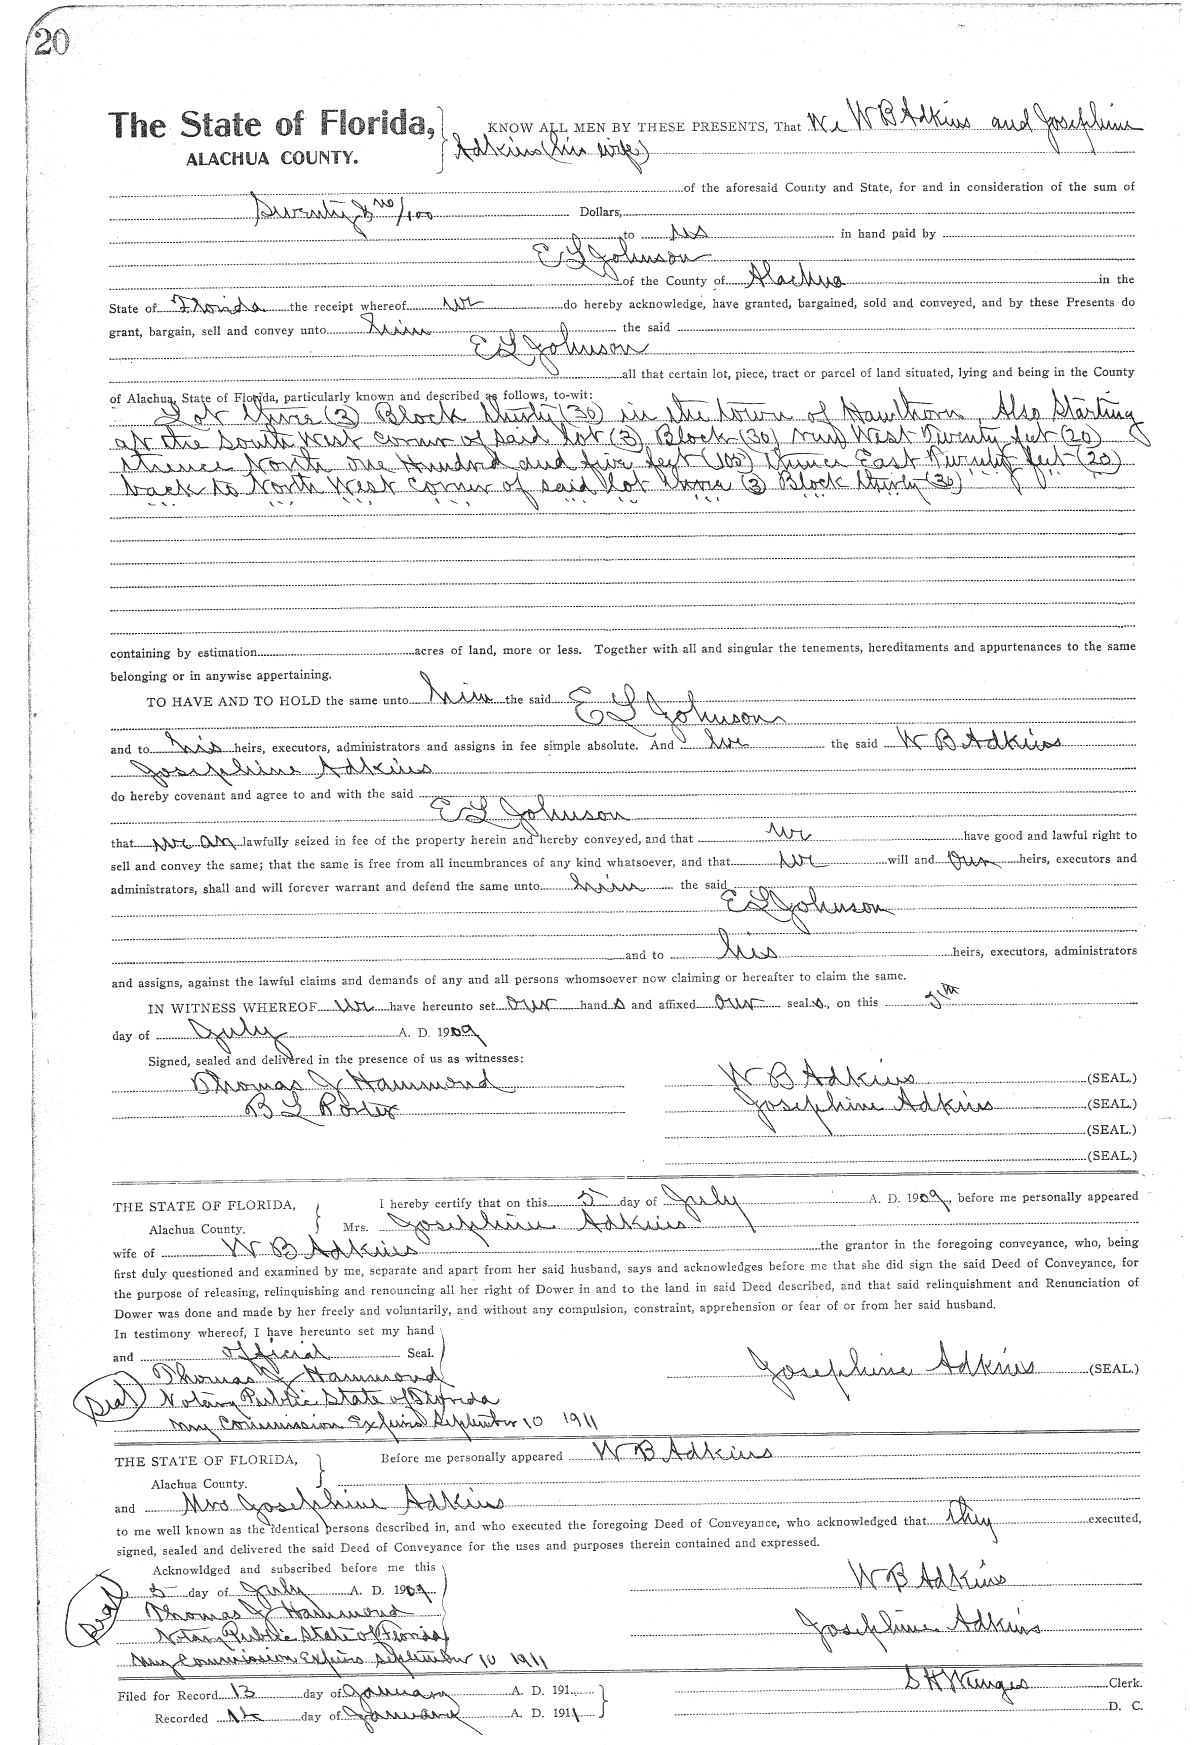 20
The State of Florida, KNOW ALL MEN BY THESE PRESENTS, That We W B Adkins and Josephine
ALACHUA COUNTY. Adkins (his wife)
of the aforesaid County and State, for and in consideration of the sum of
Twenty & no/100 Dollars,
to us in hand paid by
E L Johnson
of the County of Alachua in the
State of Florida the receipt whereof we do hereby acknowledge, have granted, bargained, sold and conveyed, and by these Presents do
grant, bargain, sell and convey unto him the said
E L Johnson
all that certain lot, piece, tract or parcel of land situated, lying and being in the County
of Alachua, State of Florida, particularly known and described as follows, to-wit:
Lot three (3) Block thirty (30) in the town of Hawthorn Also Starting
at the South West Corner of said lot (3) Block (30) run West Twenty feet (20)
thence North one Hundred and five feet (105) thence East Twenty feet (20)
back to North West Corner of said lot three (3) Block thirty (30)
containing by estimation acres of land, more or less. Together with all and singular the tenements, hereditaments and appurtenances to the same
belonging or in anywise appertaining.
TO HAVE AND TO HOLD the same unto him the said
E L Johnson
and to his heirs, executors, administrators and assigns in fee simple absolute. And we the said W B Adkins
Josephine Adkins
do hereby covenant and agree to and with the said
E L Johnson
that we are lawfully seized in fee of the property herein and hereby conveyed, and that we have good and lawful right to
sell and convey the same; that the same is free from all incumbrances of any kind whatsoever, and that we will and our heirs, executors and
administrators, shall and will forever warrant and defend the same unto him the said
E L Johnson
and to his heirs, executors, administrators
and assigns, against the lawful claims and demands of any and all persons whomsoever now claiming or hereafter to claim the same.
IN WITNESS WHEREOF we have hereunto set our hand s and affixed our seal s, on this 5th
day of July A. D. 1909
Signed, sealed and delivered in the presence of us as witnesses:
Thomas J Hammond W B Adkins (SEAL.)
B L Porter Josephine Adkins (SEAL.)
(SEAL.)
(SEAL.)
THE STATE OF FLORIDA, I hereby certify that on this 5 day of July A. D. 1909, before me personally appeared
Alachua County. Mrs. Josephine Adkins
wife of W B Adkins the grantor in the foregoing conveyance, who, being
first duly questioned and examined by me, separate and apart from her said husband, says and acknowledges before me that she did sign the said Deed of Conveyance, for
the purpose of releasing, relinquishing and renouncing all her right of Dower in and to the land in said Deed described, and that said relinquishment and Renunciation of
Dower was done and made by her freely and voluntarily, and without any compulsion, constraint, apprehension or fear of or from her said husband.
In testimony whereof, I have hereunto set my hand
and official Seal.
Thomas J Hammond Josephine Adkins (SEAL.)
Seal Notary Public State of Florida
My Commission Expires September 10 1911
THE STATE OF FLORIDA, Before me personally appeared W B Adkins
Alachua County.
and Mrs Josephine Adkins
to me well known as the identical persons described in, and who executed the foregoing Deed of Conveyance, who acknowledged that they executed,
signed, sealed and delivered the said Deed of Conveyance for the uses and purposes therein contained and expressed.
Acknowldged and subscribed before me this
5 day of July A. D. 1909 W B Adkins
Seal Thomas J Hammond
Notary Public State of Florida Josephine Adkins
My Commission Expires September 10 1911
Filed for Record 13 day of January A. D. 191 S H Wienges Clerk.
Recorded 14 day of January A. D. 1911 D. C.